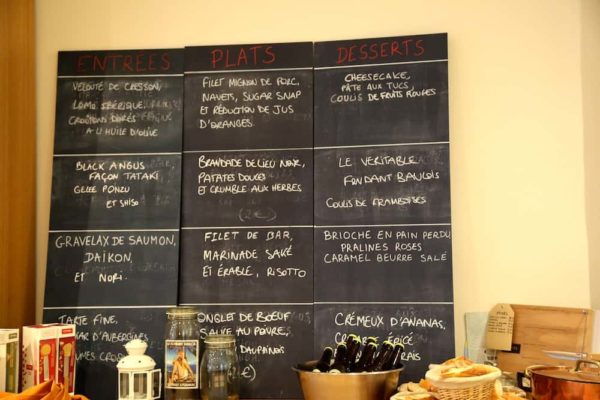 ENTREES
VELOUTÉ DE CRESSON,
LOMO IBÉRIQUE,
CROÛTONS DORÉS
A L'HUILE D'OLIVE
BLACK ANGUS
FAÇON TATAKI
GELEE PONZU
ET SHISO
GRAVELAX DE SAUMON,
DAÏKON,
ET NORI.
TARTE FINE,
D'AUBERGINES
PLATS
FILET MIGNON DE PORC,
NAVETS, SUGAR SNAP
ET RÉDUCTION DE JUS
D'ORANGES.
BRANDADE DE LIEU NOIR,
PATATES DOUCES
ET CRUMBLE AUX HERBES
(2€)
FILET DE BAR,
MARINADE SAKÉ
ET ÉRABLE, RISOTTO
ONGLET DE BOEUF
SAUCE AU POIVRE,
DAUPHINOIS
DESSERTS
CHEESECAKE,
PÂTE AUX TUCS,
COULIS DE FRUITS ROUGES
LE VERITABLE
FONDANT BAULOIS
COULIS DE FRAMBOISES
BRIOCHE EN PAIN PERDU
PRALINES ROSES
CARAMEL BEURRE SALÉ
CRÉMEUX D'ANANAS,
ÉPICÉ